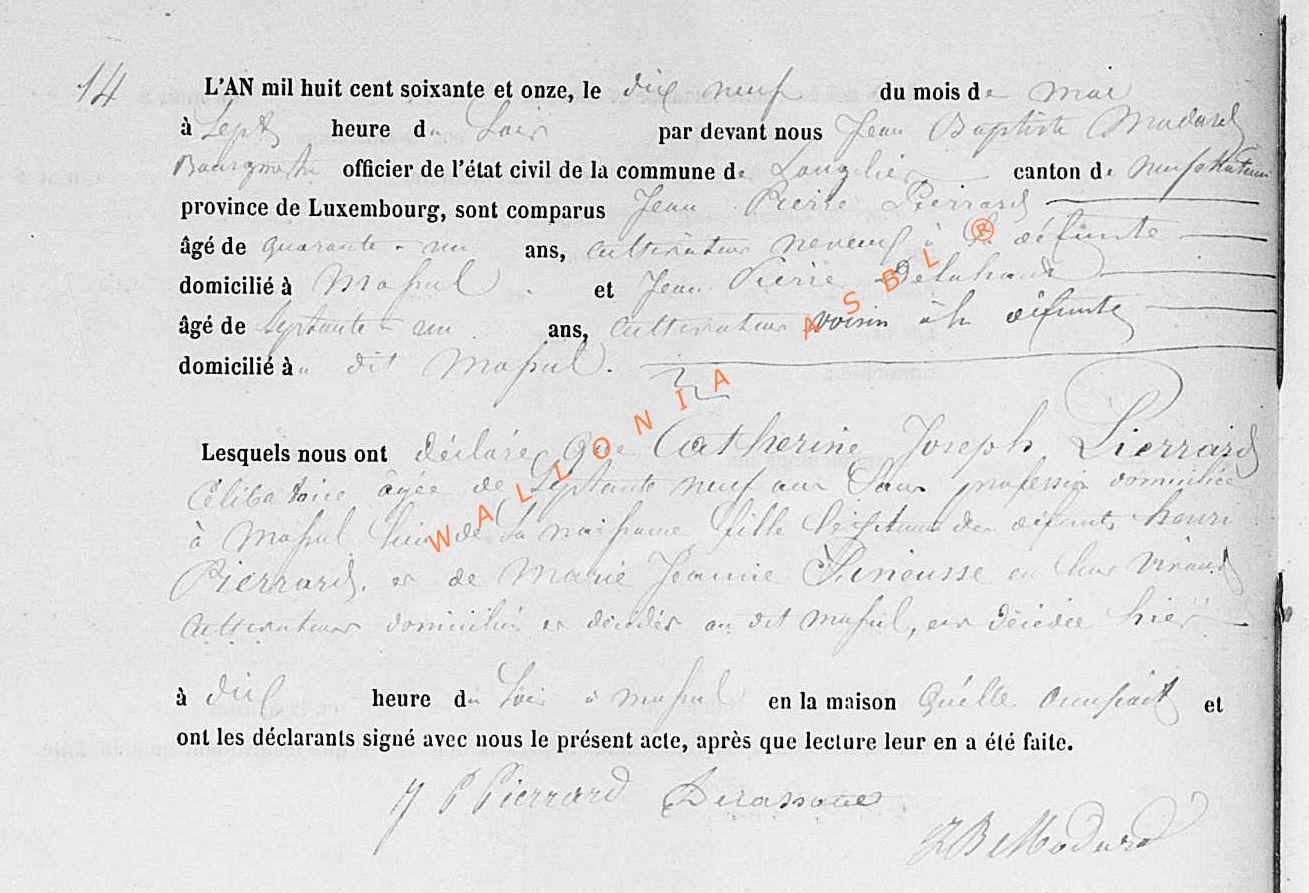 14
L'AN mil huit cent soixante et onze, le dix neuf du mois de mai
à Sept heure du Soir par devant nous Jean Baptiste Modard
Bourgmestre officier de l'état civil de la commune de Longlier canton de neufchateau
province de Luxembourg, sont comparus Jean Pierre Pierrard
âgé de quarante-un ans, cultivateur neveux à la défunte
domicilié à Massul et Jean Pierre
âgé de septante-un ans, cultivateur voisin à la défunte
domicilié au dit Massul.
WALLONIA ASBL ®
Lesquels nous ont déclaré que Catherine Joseph Pierrard
célibataire agée de Septante neuf ans Sans profession domiciliée
à Massul lieu de sa naissance fille légitime des défunts henri
Pierrard, et de Marie Jeanne en leur vivant
cultivateurs domiciliés et décédés au dit massul, est décédée hier
à dix heure du Soir à massul en la maison qu'elle occupait et
ont les déclarants signé avec nous le présent acte, après que lecture leur en a été faite.
J P Pierrard
J B Modard